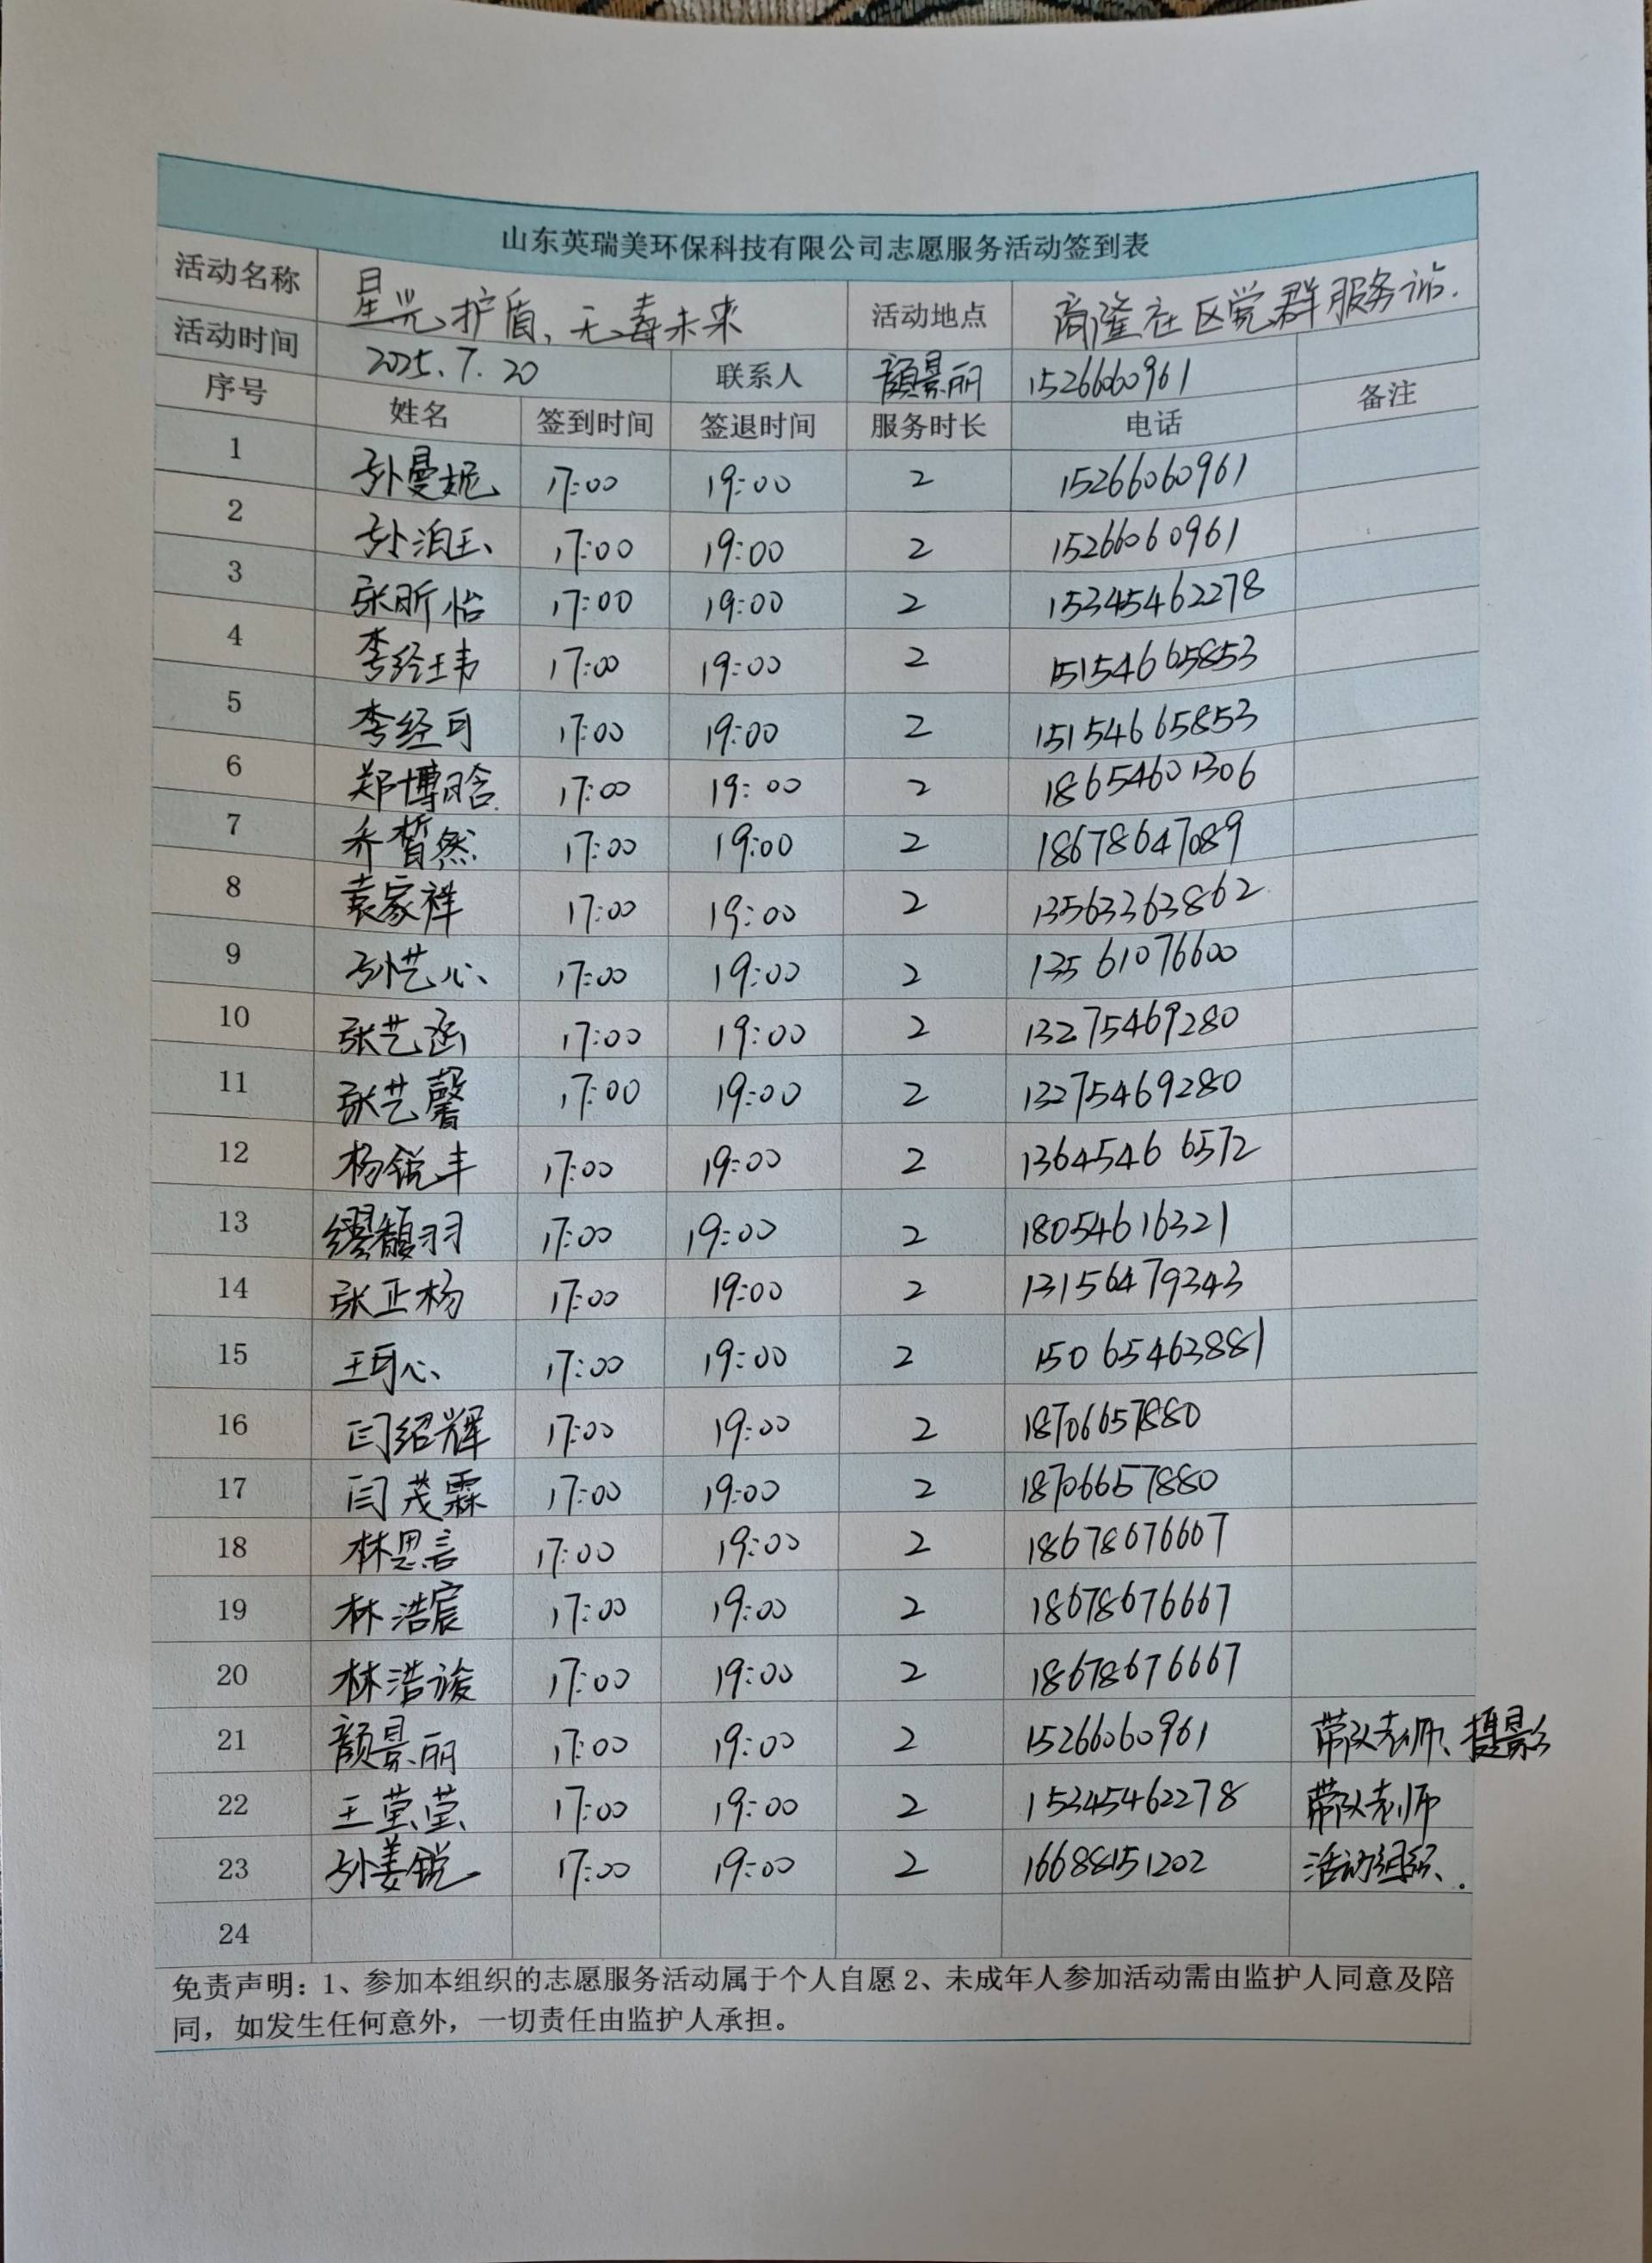 山东英瑞美环保科技有限公司志愿服务活动签到表
活动名称 星光护盾、无毒未来 活动地点 商隆社区党群服务站.
活动时间 2025.7.20 联系人 颜景丽 15266060961
序号 姓名 签到时间 签退时间 服务时长 电话 备注
1 孙曼妮 17:00 19:00 2 15266060961
2 孙泊玉 17:00 19:00 2 15266060961
3 张昕怡 17:00 19:00 2 15345462278
4 李经玮 17:00 19:00 2 15154665853
5 李经可 17:00 19:00 2 15154665853
6 郑博晗 17:00 19:00 2 18654601306
7 乔皙然 17:00 19:00 2 18678647089
8 袁家祥 17:00 19:00 2 13563363862
9 孙艺心 17:00 19:00 2 13561076600
10 张艺函 17:00 19:00 2 13275469280
11 张艺馨 17:00 19:00 2 13275469280
12 杨锐丰 17:00 19:00 2 13645466572
13 缪馥羽 17:00 19:00 2 18054616321
14 张正杨 17:00 19:00 2 13156479343
15 王可心 17:00 19:00 2 15065463881
16 闫绍辉 17:00 19:00 2 18706657880
17 闫茂霖 17:00 19:00 2 18706657880
18 林思言 17:00 19:00 2 18678676667
19 林浩宸 17:00 19:00 2 18678676667
20 林浩诶 17:00 19:00 2 18678676667
21 颜景丽 17:00 19:00 2 15266060961 带队老师、摄影
22 王莹莹 17:00 19:00 2 15345462278 带队老师
23 孙姜锐 17:00 19:00 2 16688151202 活动组织.
24
免责声明：1、参加本组织的志愿服务活动属于个人自愿 2、未成年人参加活动需由监护人同意及陪
同，如发生任何意外，一切责任由监护人承担。